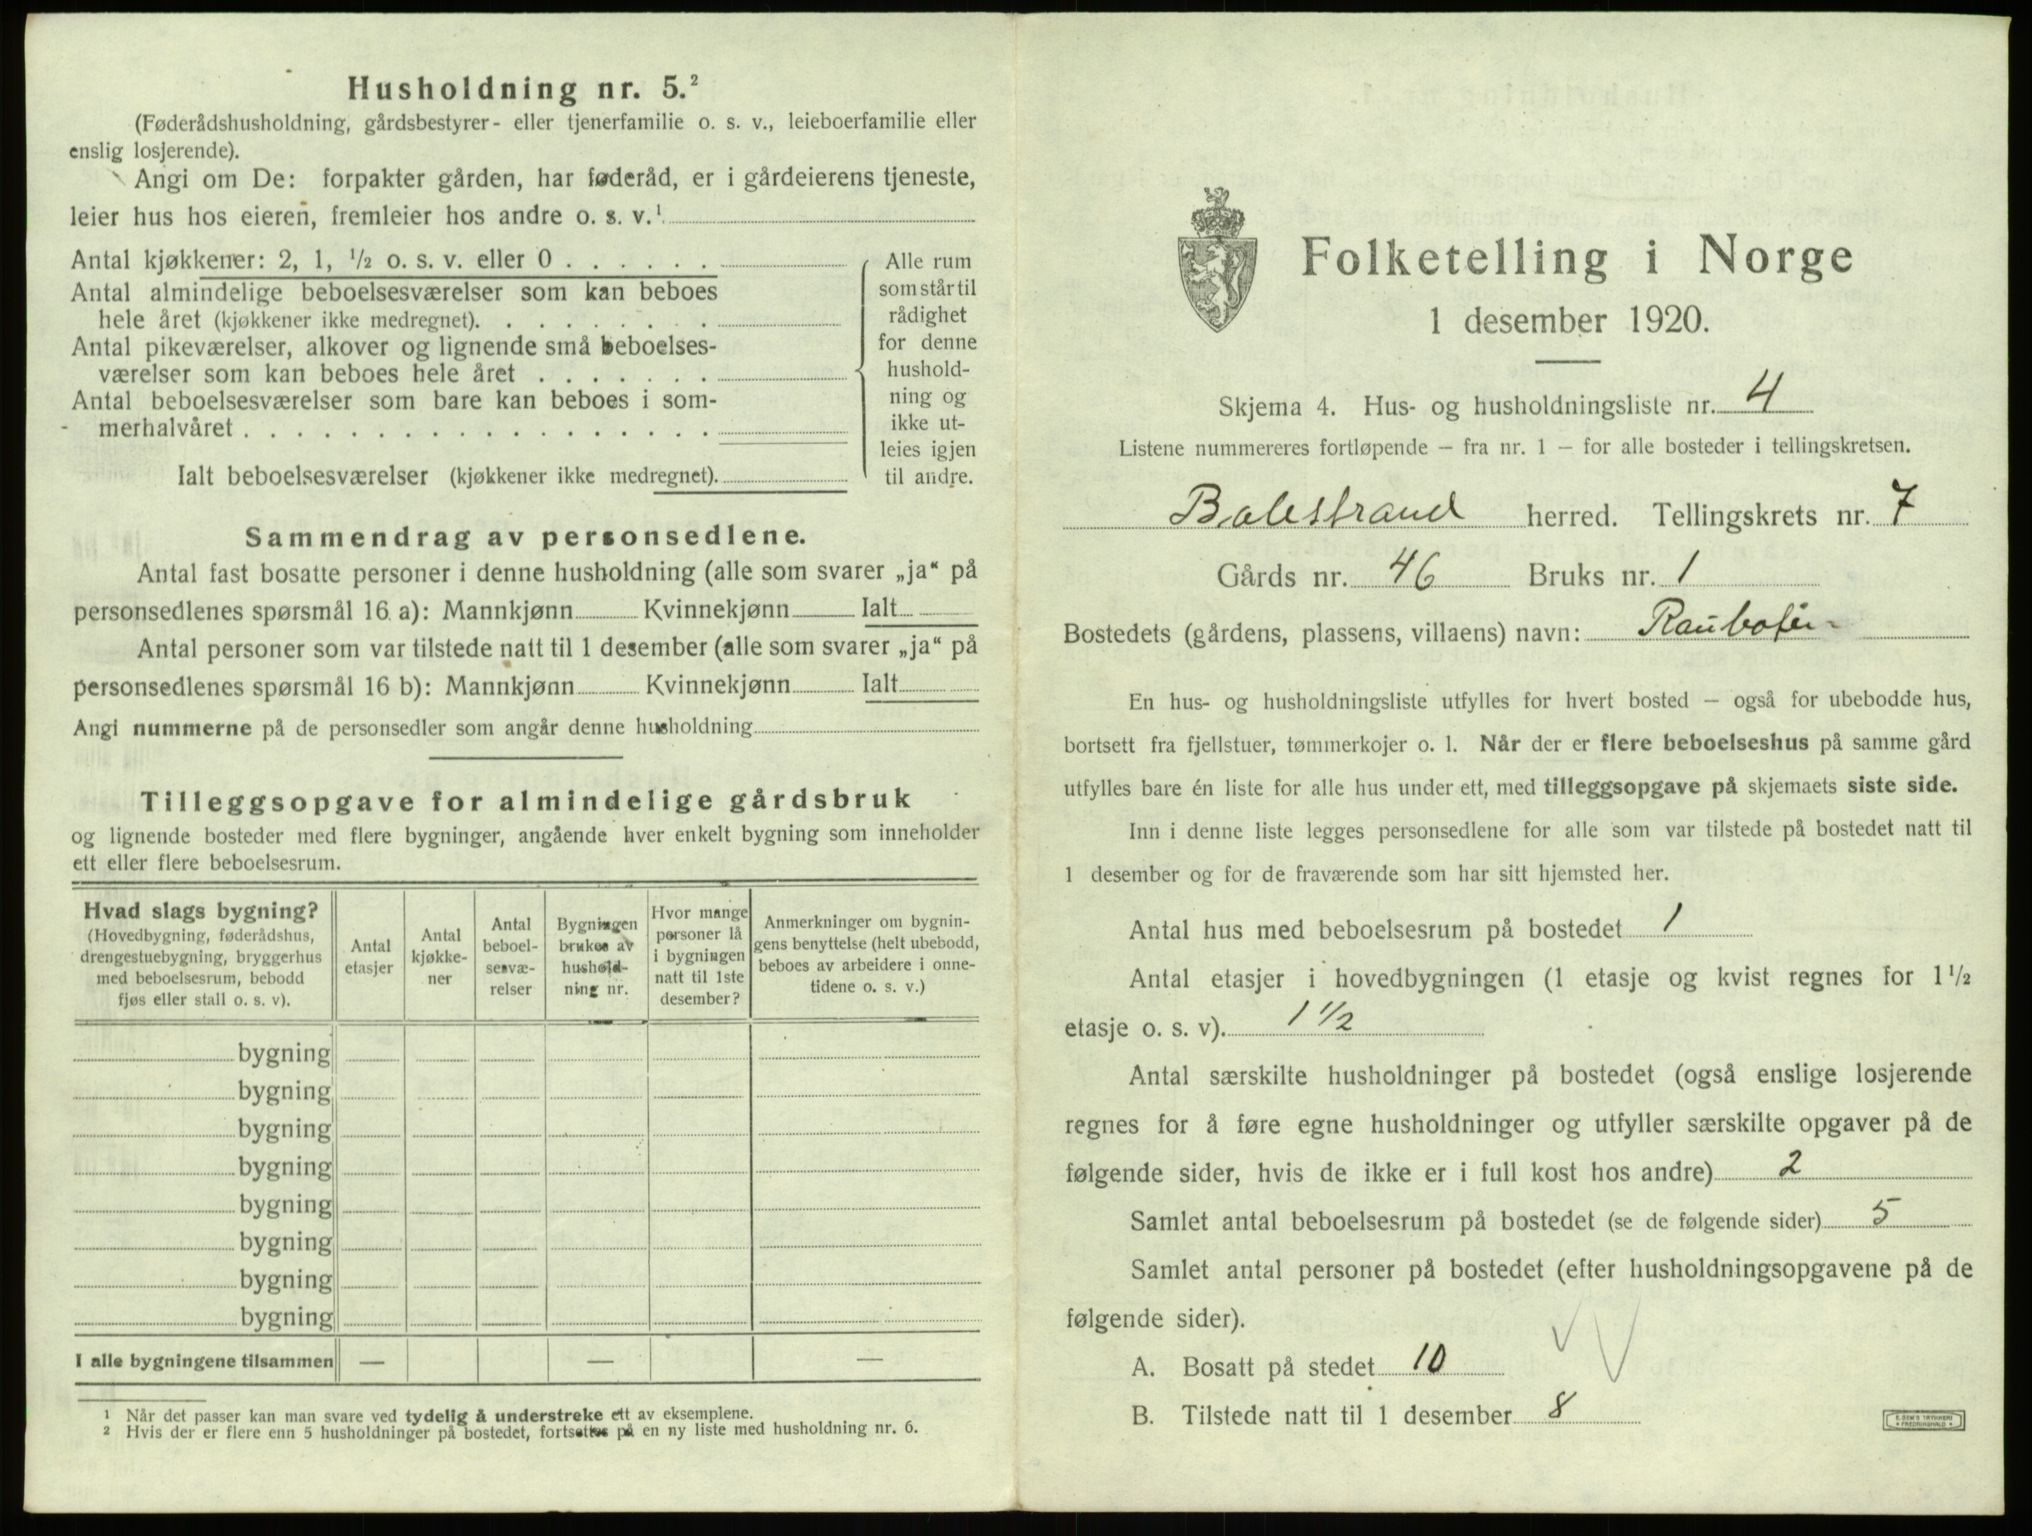 Husholdning nr. 5.²
(Føderådshusholdning, gårdsbestyrer- eller tjenerfamilie o. s. v., leieboerfamilie eller
enslig losjerende).
Angi om De: forpakter gården, har føderåd, er i gårdeierens tjeneste,
leier hus hos eieren, fremleier hos andre o. s. v.¹
Antal kjøkkener: 2, 1, ½ o. s. v. eller 0 . . . . . .
Antal almindelige beboelsesværelser som kan beboes
hele året (kjøkkener ikke medregnet). . . . . . . . .
Antal pikeværelser, alkover og lignende små beboelses-
værelser som kan beboes hele året . . . . . . .
Antal beboelsesværelser som bare kan beboes i som-
merhalvåret . . . . . . . . . . . . . . . . . .
Ialt beboelsesværelser (kjøkkener ikke medregnet).
Alle rum
som står til
rådighet
for denne
hushold-
ning og
ikke ut-
leies igjen
til andre.
Sammendrag av personsedlene.
Antal fast bosatte personer i denne husholdning (alle som svarer „ja“ på
personsedlenes spørsmål 16 a): Mannkjønn Kvinnekjønn Ialt
Antal personer som var tilstede natt til 1 desember (alle som svarer „ja“ på
personsedlenes spørsmål 16 b): Mannkjønn Kvinnekjønn Ialt
Angi nummerne på de personsedler som angår denne husholdning
Tilleggsopgave for almindelige gårdsbruk
og lignende bosteder med flere bygninger, angående hver enkelt bygning som inneholder
ett eller flere beboelsesrum.
Hvad slags bygning?
(Hovedbygning, føderådshus,
drengestuebygning, bryggerhus
med beboelsesrum, bebodd
fjøs eller stall o. s. v).
Antal
etasjer
Antal
kjøkke-
ner
Antal
beboel-
sesvæ-
relser
Bygningen
brukes av
hushold-
ning nr.
Hvor mange
personer lå
i bygningen
natt til 1ste
desember?
Anmerkninger om bygnin-
gens benyttelse (helt ubebodd,
beboes av arbeidere i onne-
tidene o. s. v.)
bygning
bygning
bygning
bygning
bygning
bygning
bygning
bygning
I alle bygningene tilsammen — — —
¹ Når det passer kan man svare ved tydelig å understreke ett av eksemplene.
² Hvis der er flere enn 5 husholdninger på bostedet, fortsettes på en ny liste med husholdning nr. 6.
Folketelling i Norge
1 desember 1920.
Skjema 4. Hus- og husholdningsliste nr. 4
Listene nummereres fortløpende – fra nr. 1 – for alle bosteder i tellingskretsen.
Balestrand herred. Tellingskrets nr. 7
Gårds nr. 46 Bruks nr. 1
Bostedets (gårdens, plassens, villaens) navn:
En hus- og husholdningsliste utfylles for hvert bosted – også for ubebodde hus,
bortsett fra fjellstuer, tømmerkojer o. l. Når der er flere beboelseshus på samme gård
utfylles bare én liste for alle hus under ett, med tilleggsopgave på skjemaets siste side.
Inn i denne liste legges personsedlene for alle som var tilstede på bostedet natt til
1 desember og for de fraværende som har sitt hjemsted her.
Antal hus med beboelsesrum på bostedet 1
Antal etasjer i hovedbygningen (1 etasje og kvist regnes for 1 ½
etasje o. s. v). 1 ½
Antal særskilte husholdninger på bostedet (også enslige losjerende
regnes for å føre egne husholdninger og utfyller særskilte opgaver på de
følgende sider, hvis de ikke er i full kost hos andre) 2
Samlet antal beboelsesrum på bostedet (se de følgende sider) 5
Samlet antal personer på bostedet (efter husholdningsopgavene på de
følgende sider).
A. Bosatt på stedet 10
B. Tilstede natt til 1 desember 8